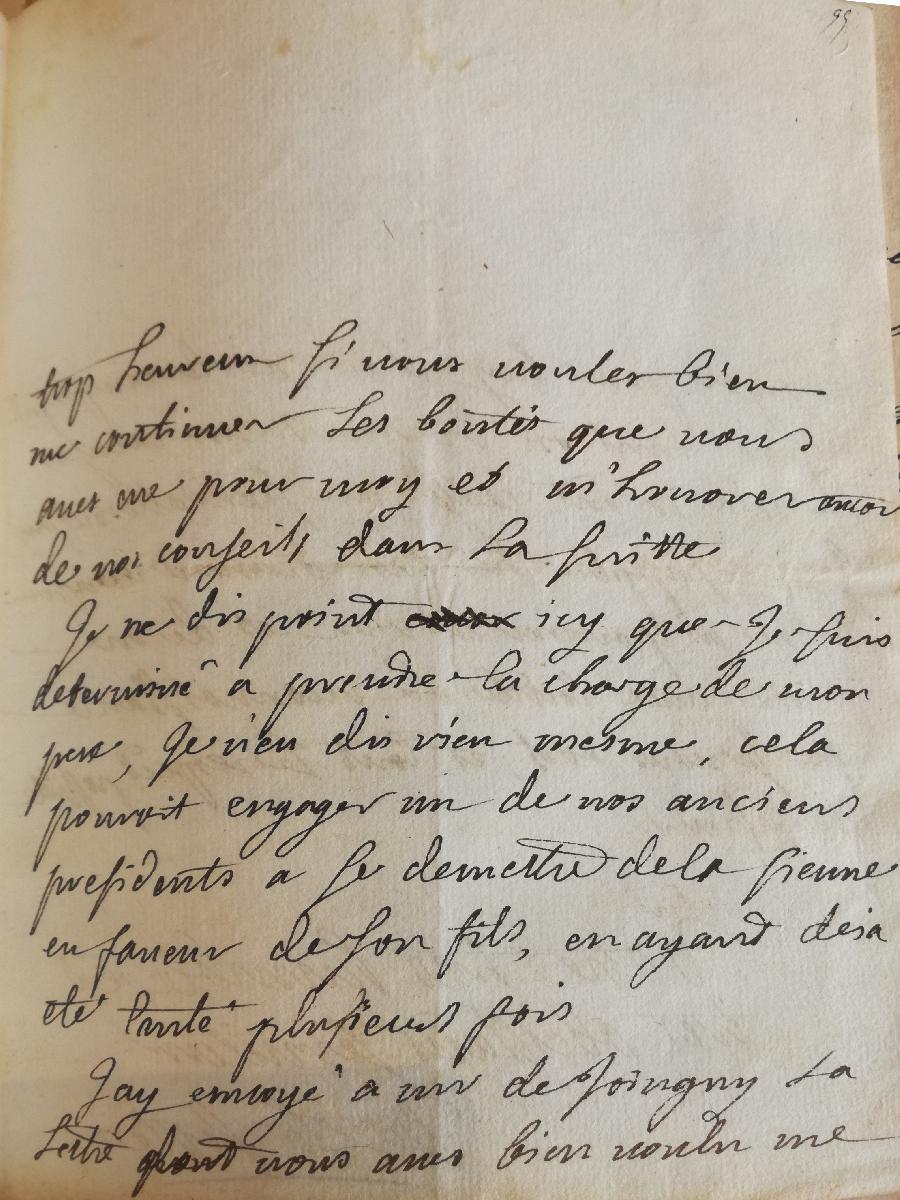 99
trop heureux si vous voulez bien
me continuer les bontés que vous
avez eue pour moy et m'honorer encor
de vos conseils dans la suitte
Je ne dis point icy que Je suis
determiné a prendre la charge de mon
pere, Je n'en dis rien mesme, cela
pouroit engager un de nos anciens
presidents a se demettre de la sienne
en faveur de son fils, en ayant desja
eté tenté plusieurs fois
Jay envoyé a mr de Joingny La
Lettre dont vous aves bien voulu me